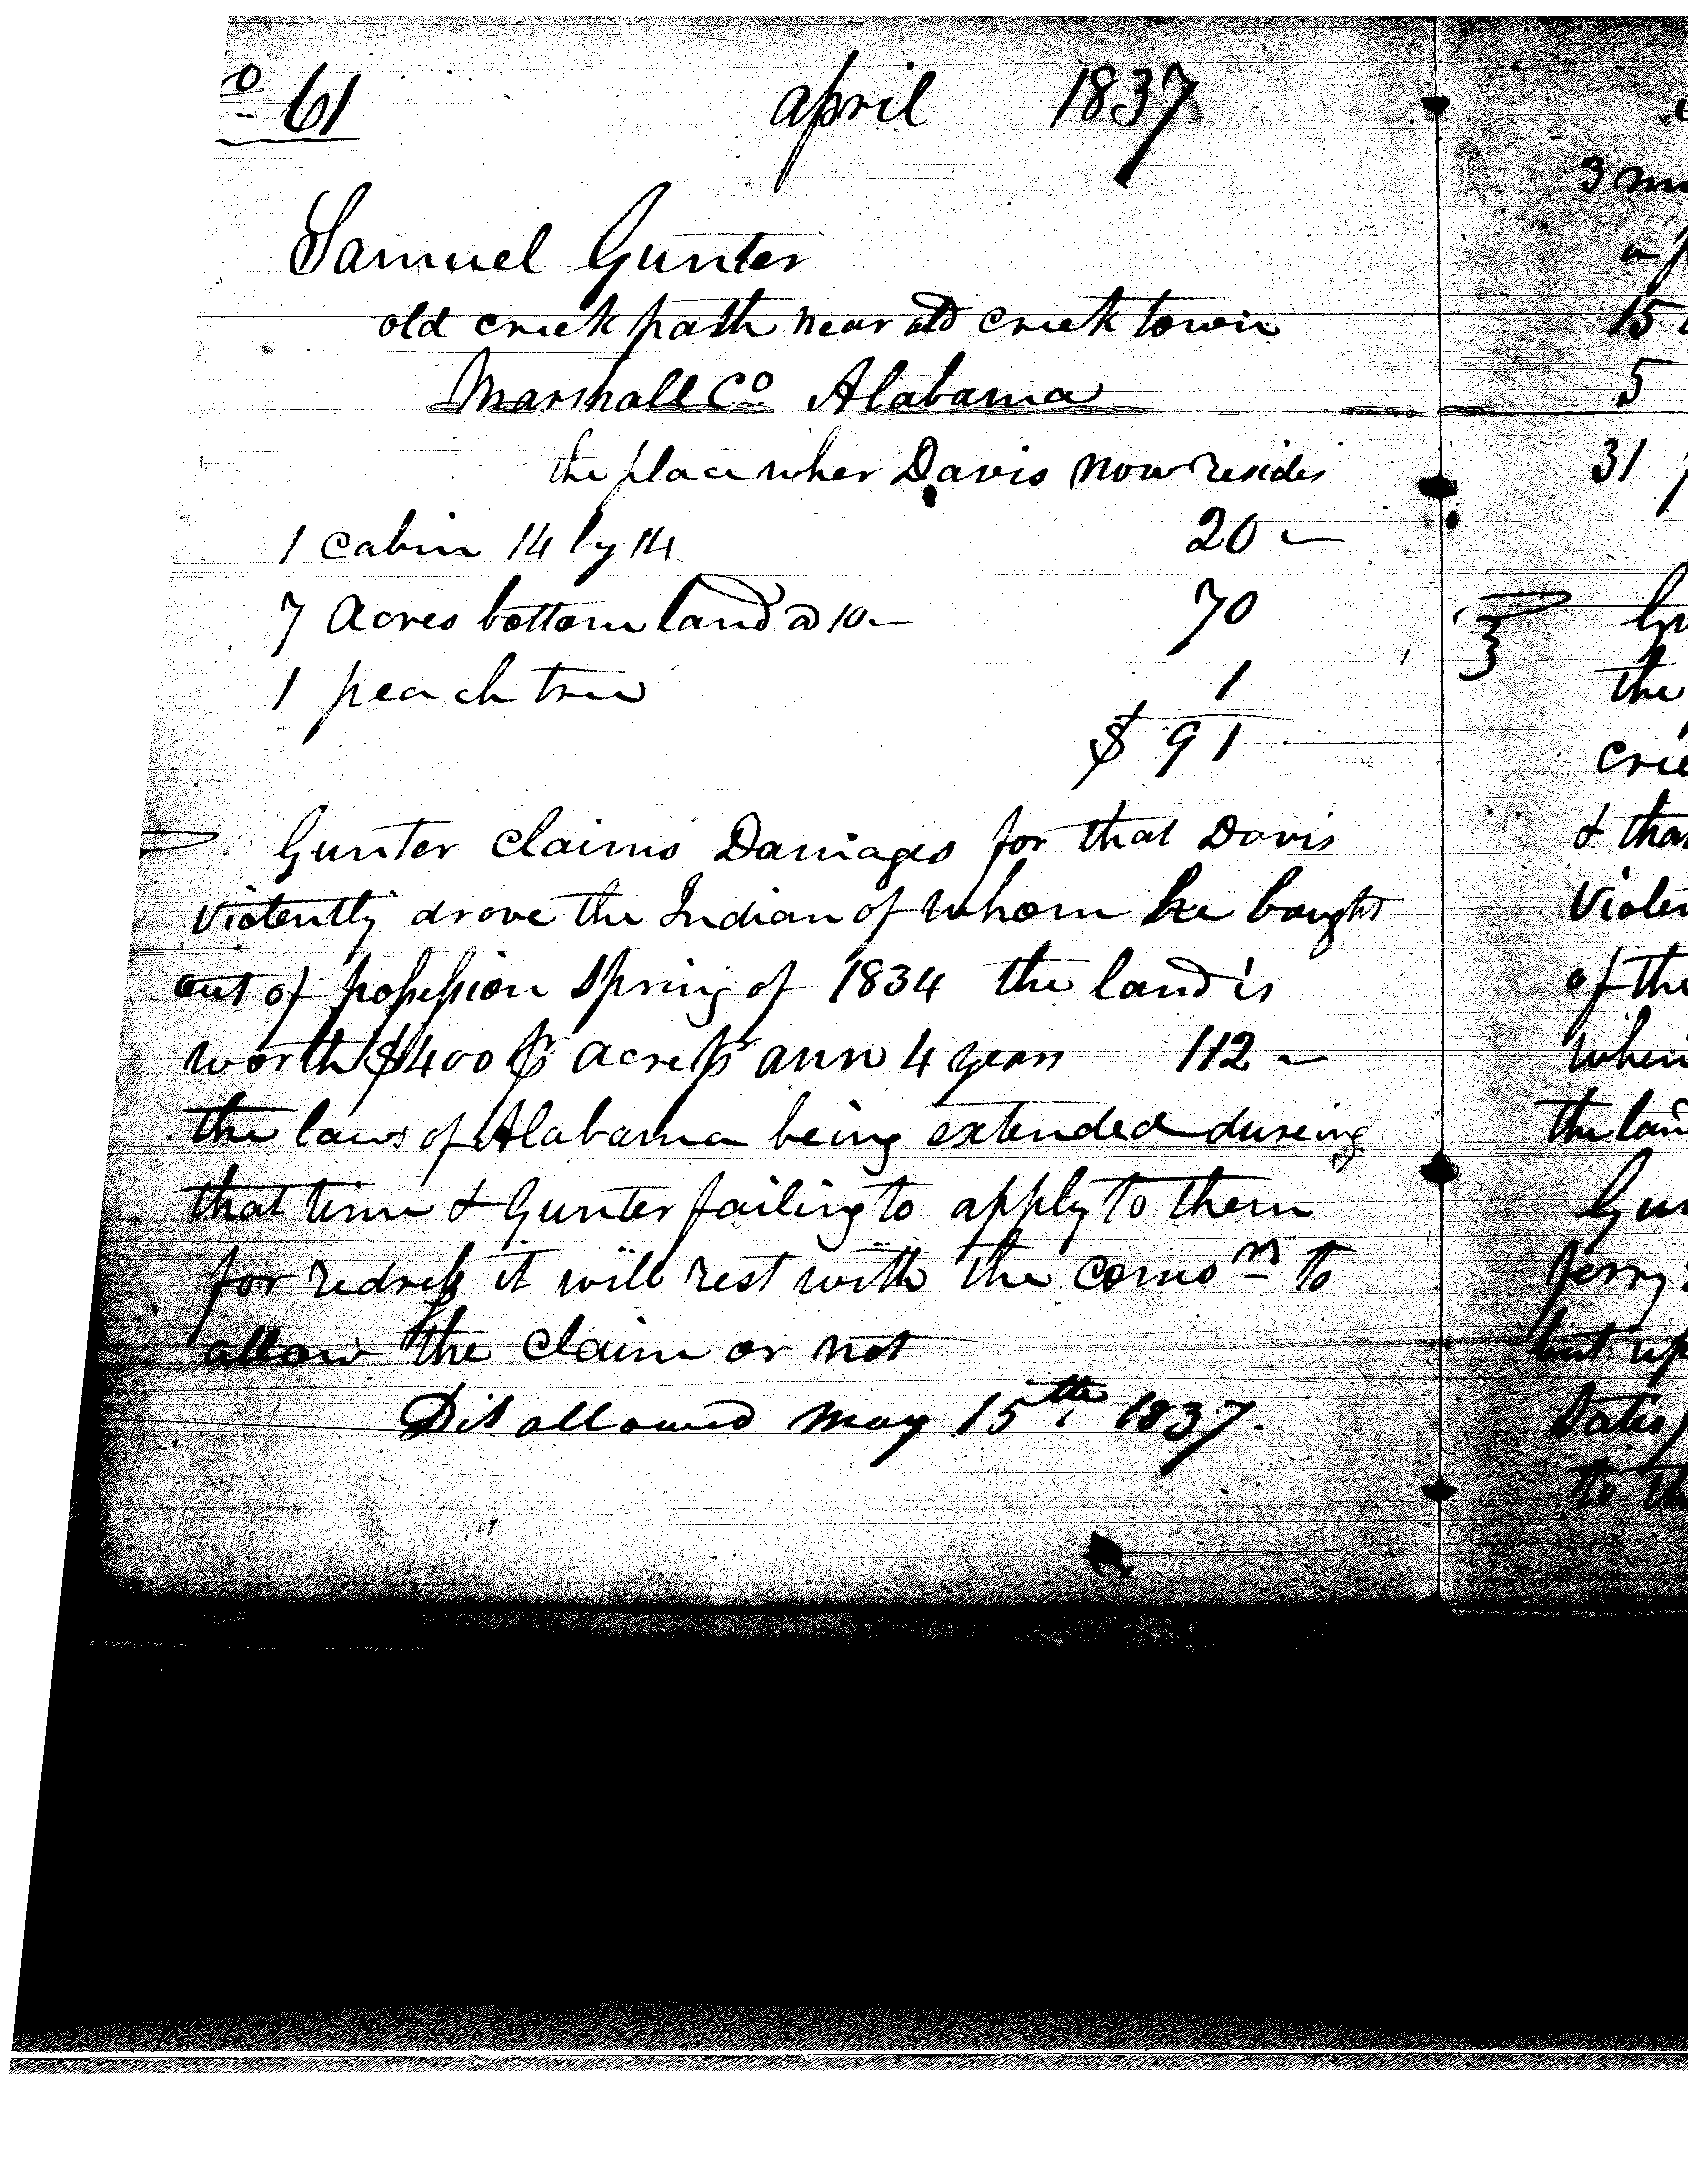 o 61 april 1837
Samuel Gunter
old creek path near old creek town
Marshall Co Alabama
the place wher Davis now resides
1 cabin 14 by 14 20 —
7 Acres bottom land @ 10 — 70
1 peach tree 1
$ 91
Gunter claims Damages for that Davis
violently drove the Indian of whom he bought
out of possession Spring of 1834 the land is
worth $400 pr acre pr ann 4 years 112 —
the laws of Alabama being extended dureing
that time & Gunter failing to apply to them
for redress it will rest with the comrs to
allow the claim or not
Disallowed may 15th 1837.
3
15
5
31
the
& that
of the
when
the land
to the